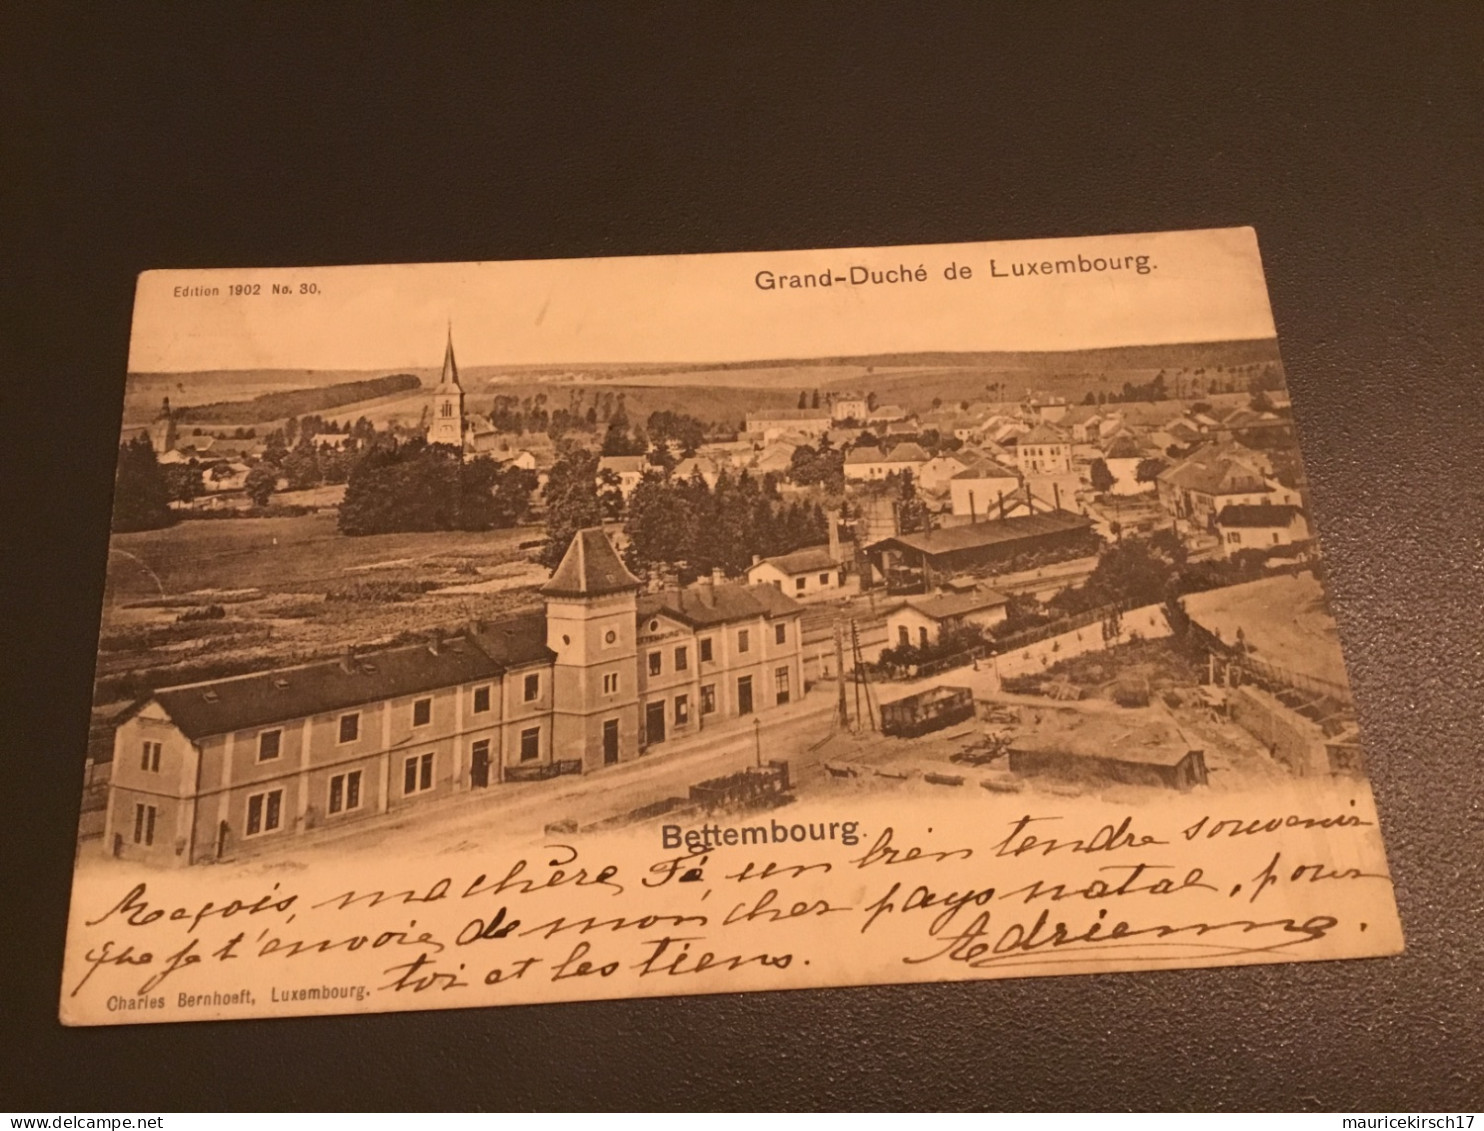 Edition 1902 No. 30.
Grand-Duché de Luxembourg.
BETTEMBOURG
Bettembourg.
Reçois, ma chère Fé, un bien tendre souvenir
que je t'envoie de mon cher pays natal, pour
toi et les tiens. Adrienne.
Charles Bernhoeft, Luxembourg.
www.delcampe.net
mauricekirsch17